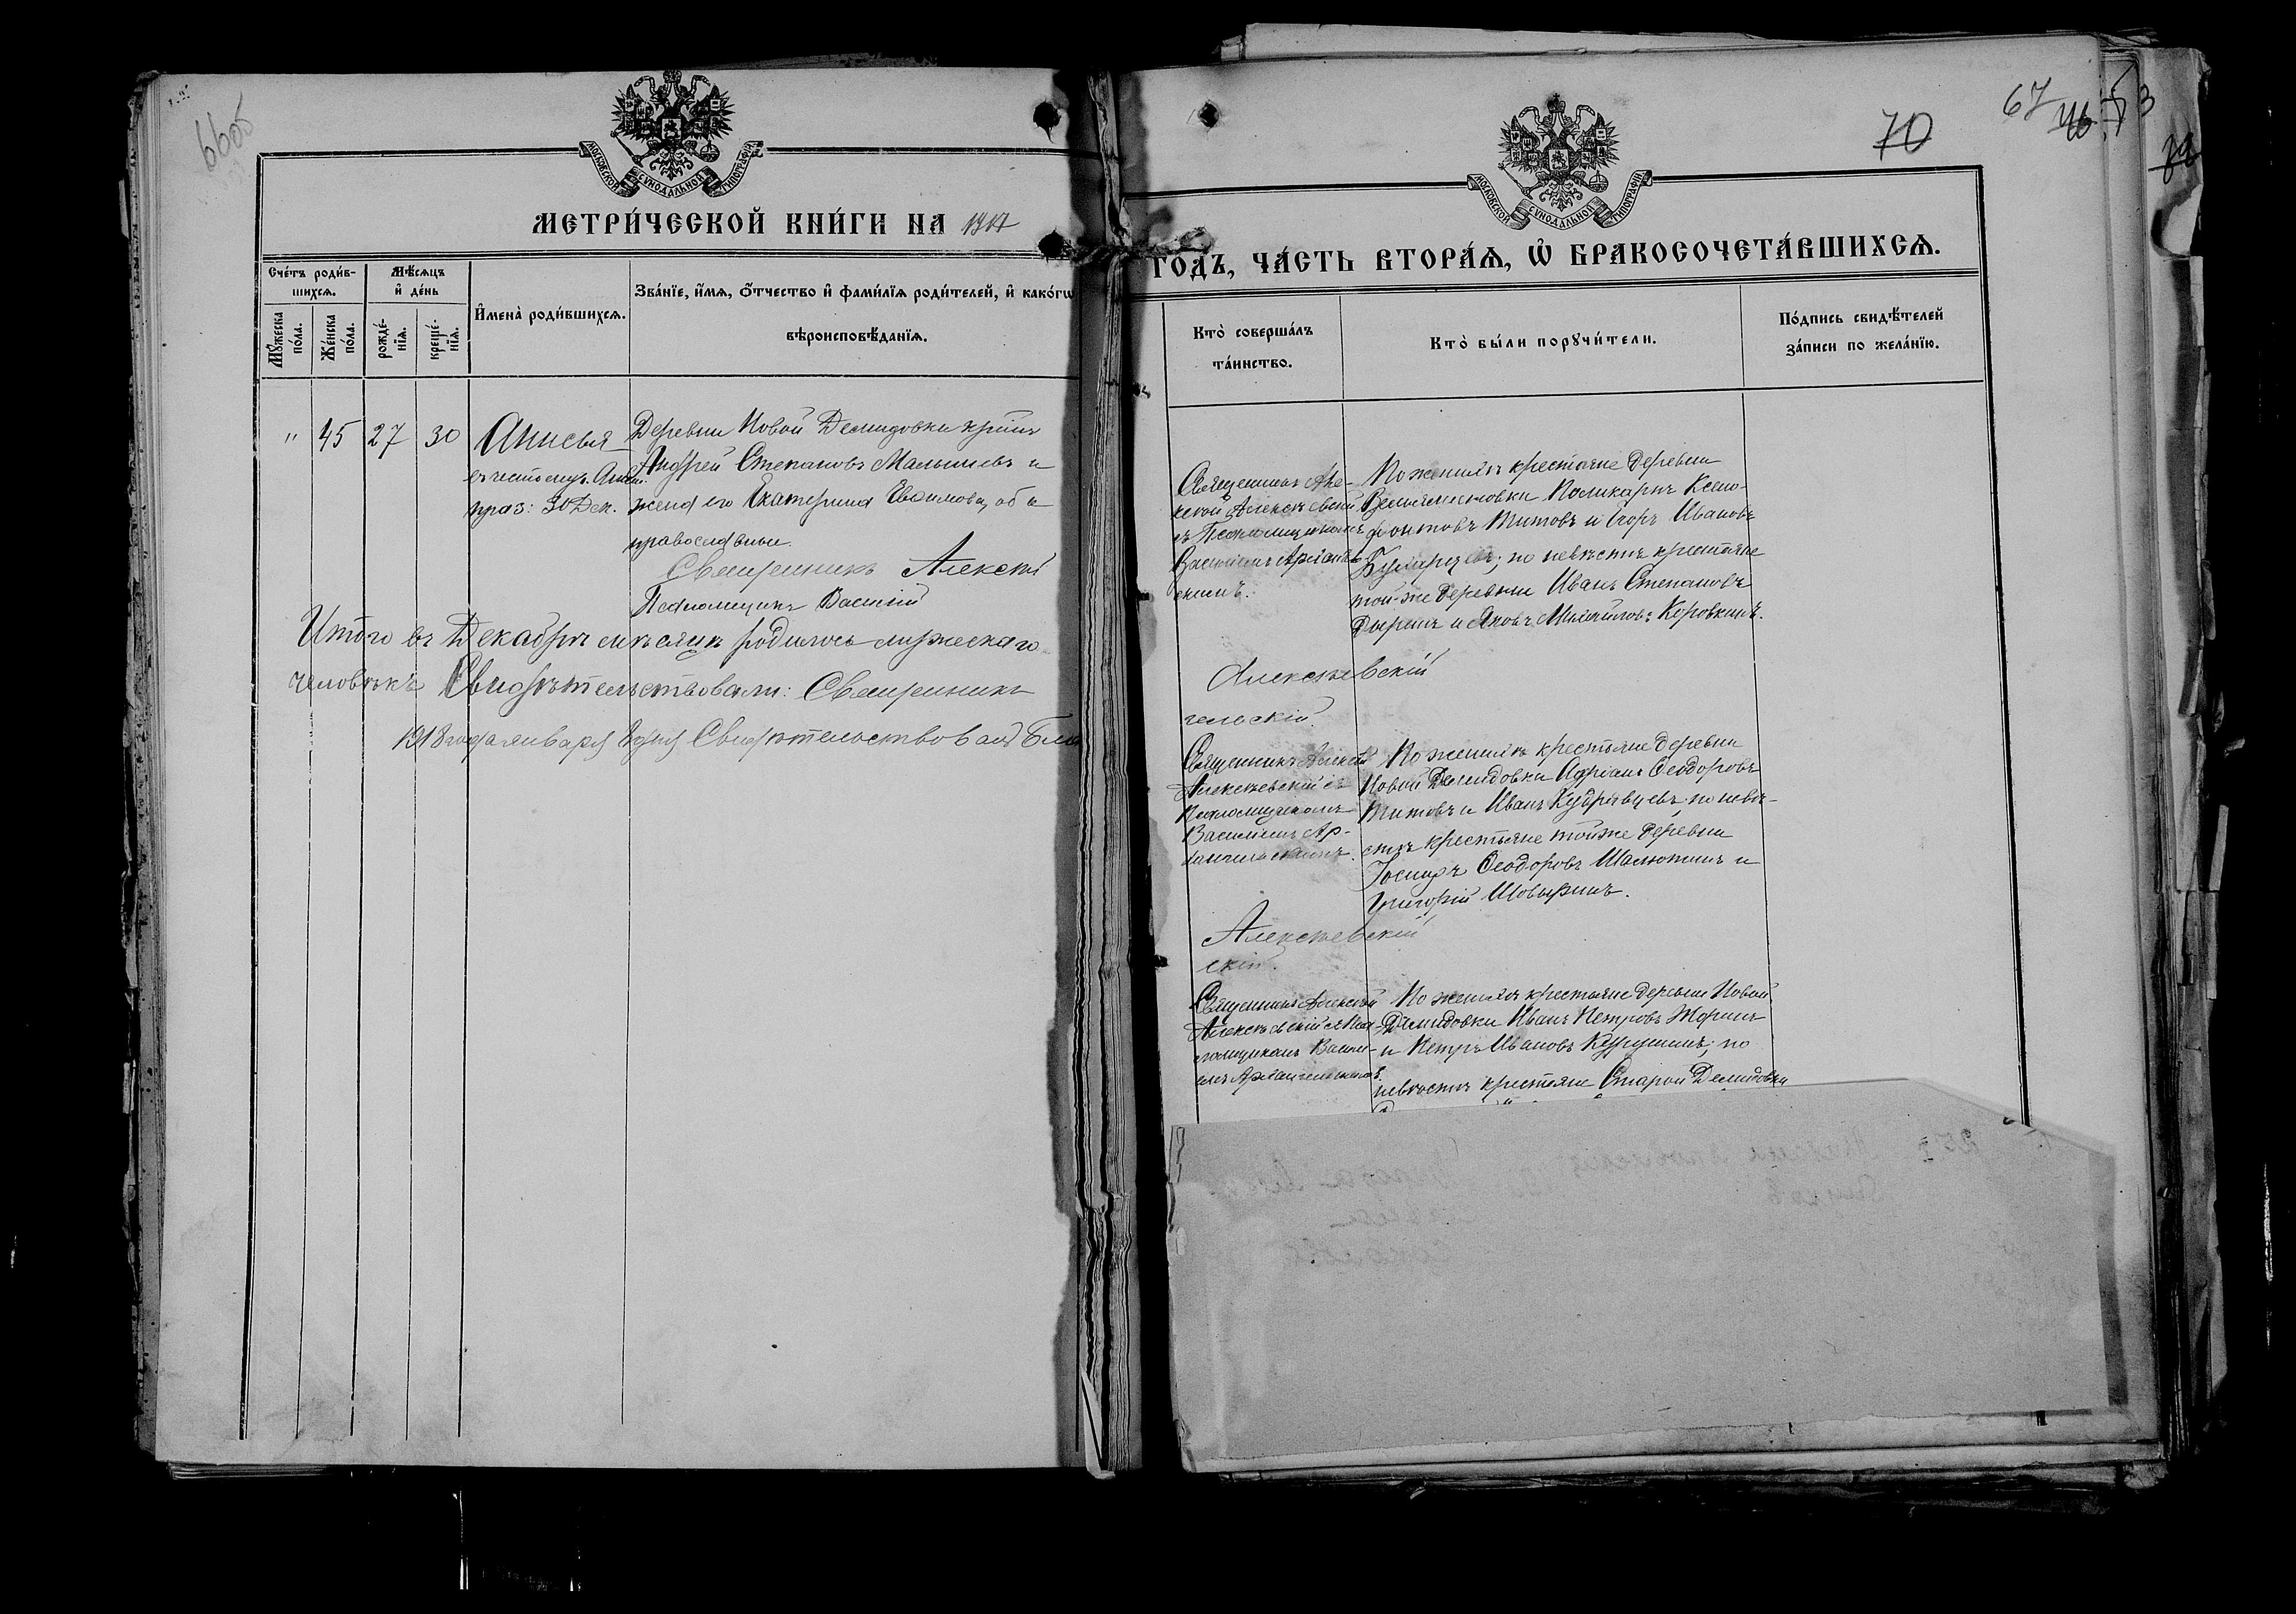 66об
МОСКОВСКОЙ СУНОДАЛЬНОЙ ТИПОГРАФІИ
МЕТРИ́ЧЕСКОЙ КНИ́ГИ НА 1917
Сче́тъ роди́в-
шихсѧ.
Мꙋ́жеска по́ла.
Же́нска по́ла.
Мѣ́сѧцъ
и҆ де́нь
рожде́-
нїѧ.
креще́-
нїѧ.
И҆мена̀ роди́вшихсѧ.
Зва́нїе, и҆́мѧ, ѻ҆́тчество и҆ фами́лїѧ роди́телей, и҆ како́гѡ
вѣроисповѣ́данїѧ.
" 45 27 30 Анисья
въ честь муч. Анис.
праз: 30 Дек.
Деревни Новой Демидовки кр-нин
Андрей Степановъ Малышевъ и
жена его Екатерина Евфимова, оба
православные.
Священникъ Алексѣй
Псаломщикъ Василій
Итого въ Декабрѣ мѣсяцѣ родилось мужескаго
человѣкъ Свидѣтельствовали: Священникъ
1918 года января дня Свидѣтельствовалъ Бла
70
67
МОСКОВСКОЙ СУНОДАЛЬНОЙ ТИПОГРАФІИ
ГО́ДЪ, ЧА́СТЬ ВТОРА́Ѧ, Ѡ҆ БРАКОСОЧЕТА́ВШИХСѦ.
Кто̀ соверша́лъ
та́инство.
Кто̀ бы́ли порꙋчи́тели.
По́дпись свидѣ́телей
за́писи по жела́нїю.
Священникъ Але-
ксѣй Алексѣевскій
съ Псаломщикомъ
Василіемъ Арханге-
скимъ.
По женихѣ крестьяне деревни
Поликарпъ Ксено-
фонтовъ Титовъ и Егоръ Ивановъ
по невѣстѣ крестьяне
той-же деревни Иванъ Степановъ
Дыринъ и Яковъ Михайловъ Коровкинъ.
Алексѣевскій
гельскій.
Священникъ Алексѣй
Алексѣевскій съ
Псаломщикомъ
Василіемъ Ар-
хангельскимъ.
По женихѣ крестьяне деревни
Новой Демидовки Адріанъ Ѳеодоровъ
Титовъ и Иванъ Кудрявцевъ по невѣ-
стѣ крестьяне той же деревни
Іосифъ Ѳеодоровъ Шалютинъ и
Григорій Шовыринъ.
Алексѣевскій
скій.
Священникъ Алексѣй
Алексѣевскій съ Пса-
ломщикомъ Васи-
емъ Архангельскимъ.
По женихѣ крестьяне деревни Новой
Демидовки Иванъ Петровъ Жоринъ
и Петръ Ивановъ по
невѣстѣ крестьяне Старой Демидовки